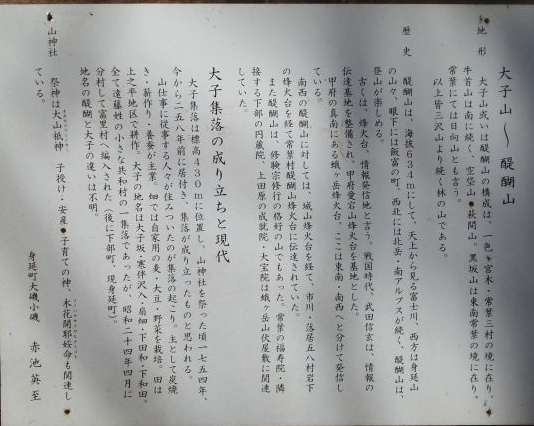 大子山〜醍醐山
地形　大子山或いは醍醐山の構成は、一色・宮木・常葉三村の境に在り、
牛首山は南に続く、空埜山・萩間山、黒坂山は東南常葉の境に在り、
常葉にては日向山とも言う。
以上皆三沢山より続く林の山である。
歴史　醍醐山は、海抜634mにして、天上から見る富士川、西方は身延山
の山々、眼下には飯富の町、西北には北岳・南アルプスが続く、醍醐山は、
登山が楽しめる。
古くは、烽火台、情報発信地と言う。戦国時代、武田信玄は、情報の
伝達基地を整備され、甲府愛宕山烽火台を基地とした。
甲府の真南にある蛾ヶ岳烽火台、ここは東南・南西へと分けて発信し
ている。
南西の醍醐山に対しては、城山烽火台を経て、市川・落居五八村岩下
の烽火台を経て常葉村醍醐山烽火台に伝達されていた。
また醍醐山は、修験宗修行の格好の山でもあった。常葉の福寿院・隣
接する下部の円蔵院、上田原の成就院・大宝院は蛾ヶ岳山伏屋敷に関連
していた。
大子集落の成り立ちと現代
大子集落は標高430mに位置し、山神社を祭った頃一七五四年、
今から二五八年前に居付き、集落が成り立ったものと思われる。
山仕事に従事する人々が住みついたのが集落の起こり。主として炭焼
き・薪作り・養蚕が主業。畑では自家用の麦・大豆・野菜を栽培。田は
上之平地区で耕作。大子の地名は大子坂・東伴沢入・扇畑・下田和・下和田。
全て遠藤姓の小さな共和村の一集落であったが、昭和二十四年四月に
分村して富里村へ編入された（後に下部町、現身延町）。
地名の醍醐と大子の違いは不明。
山神社　祭神は大山祇神、子授け・安産・子育ての神、木花開耶姫命も関連し
ている。
身延町大磯小磯　赤池英至